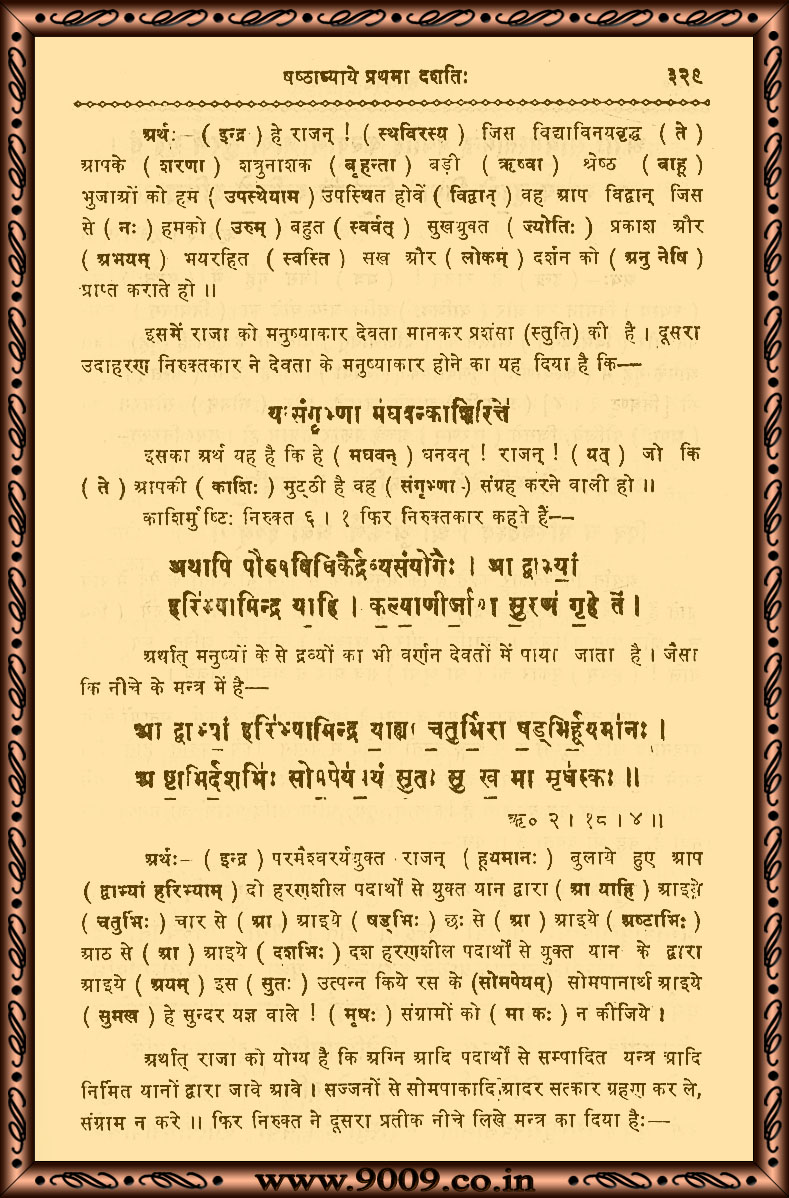 षष्ठाध्याये प्रथमा दशतिः ३२९
अर्थः- ( इन्द्र ) हे राजन् ! ( स्थविरस्य ) जिस विद्याविनयवृद्ध ( ते )
आपके ( शरणा ) शत्रुनाशक ( बृहन्ता ) बड़ी ( ऋष्वा ) श्रेष्ठ ( बाहू )
भुजाओं को हम ( उपस्थेयाम ) उपस्थित होवें ( विद्वान् ) वह आप विद्वान् जिस
से ( नः ) हमको ( उरुम् ) बहुत ( स्वर्वत् ) सुखयुक्त ( ज्योतिः ) प्रकाश और
( अभयम् ) भयरहित ( स्वस्ति ) सख और ( लोकम् ) दर्शन को ( अनु नेषि )
प्राप्त कराते हो ॥
इसमें राजा को मनुष्याकार देवता मानकर प्रशंसा (स्तुति) की है । दूसरा
उदाहरण निरुक्तकार ने देवता के मनुष्याकार होने का यह दिया है कि--
यःसंगृभ्णा मघवन्काशिरित्ते
इसका अर्थ यह है कि हे ( मघवन् ) धनवन् ! राजन् ! ( यत् ) जो कि
( ते ) आपकी ( काशिः ) मुट्ठी है वह ( संगृभ्णा ) संग्रह करने वाली हो ॥
काशिर्मुष्टिः निरुक्त ६ । १ फिर निरुक्तकार कहते हैं--
अथापि पौरुषविधिकैर्द्रव्यसंयोगैः । आ द्वाभ्यां
हरिभ्यामिन्द्र याहि । कल्याणीर्जाया सुरणं गृहे ते ।
अर्थात् मनुष्यों के से द्रव्यों का भी वर्णन देवतों में पाया जाता है । जैसा
कि नीचे के मन्त्र में है—
आ द्वाभ्यां हरिभ्यामिन्द्र याह्या चतुर्भिरा षड्भिर्हूयमानः ।
अष्टाभिर्दशभिः सोमपेयमयं सुतः सुमख मा मृधस्कः ॥
ऋ० २ । १८ । ४ ॥
अर्थः- ( इन्द्र ) परमैश्वर्ययुक्त राजन् ( हूयमानः ) बुलाये हुए आप
( द्वाभ्यां हरिभ्याम् ) दो हरणशील पदार्थों से युक्त यान द्वारा ( आ याहि ) आइये
( चतुर्भिः ) चार से ( आ ) आइये ( षड्भिः ) छः से ( आ ) आइये ( अष्टाभिः )
आठ से ( आ ) आइये ( दशभिः ) दश हरणशील पदार्थों से युक्त यान के द्वारा
आइये ( अयम् ) इस ( सुतः ) उत्पन्न किये रस के (सोमपेयम्) सोमपानार्थ आइये
( सुमख ) हे सुन्दर यज्ञ वाले ! ( मृधः ) संग्रामों को ( मा कः ) न कीजिये ।
अर्थात् राजा को योग्य है कि अग्नि आदि पदार्थों से सम्पादित यन्त्र आदि
निर्मित यानों द्वारा जावे आवे । सज्जनों से सोमपाकादि आदर सत्कार ग्रहण कर ले,
संग्राम न करे ॥ फिर निरुक्त ने दूसरा प्रतीक नीचे लिखे मन्त्र का दिया है:—
www.9009.co.in